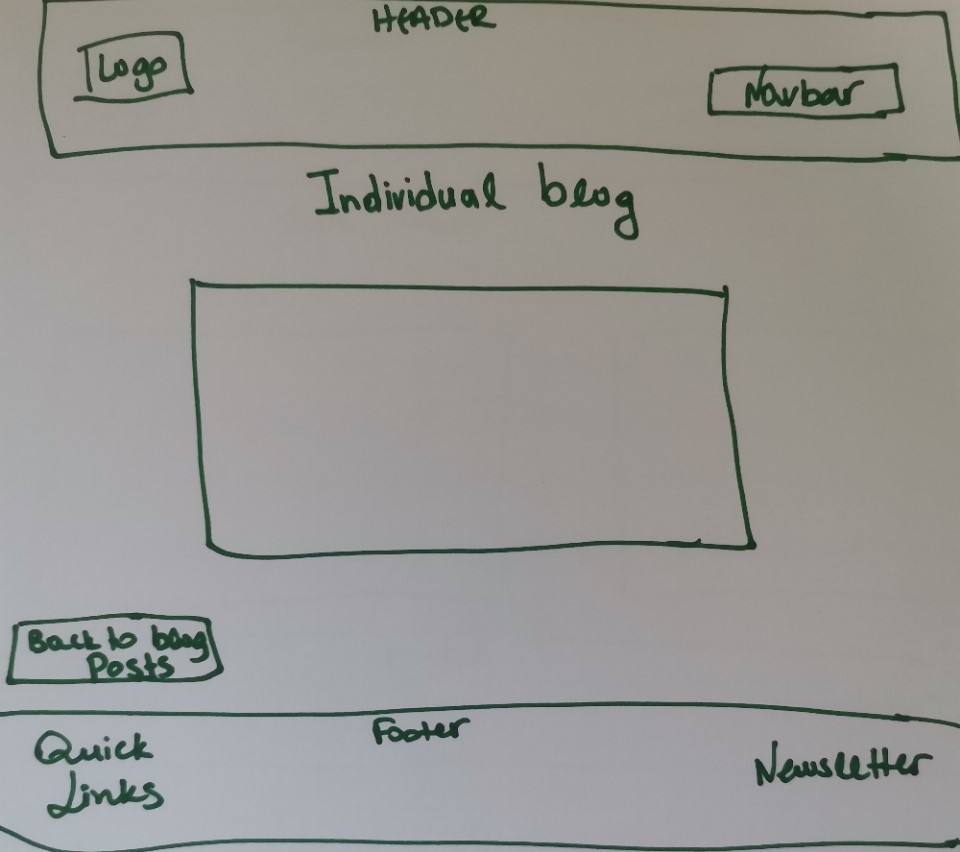 HEADER
Logo
Navbar
Individual blog
Back to blog
Posts
Footer
Quick
Links
Newsletter